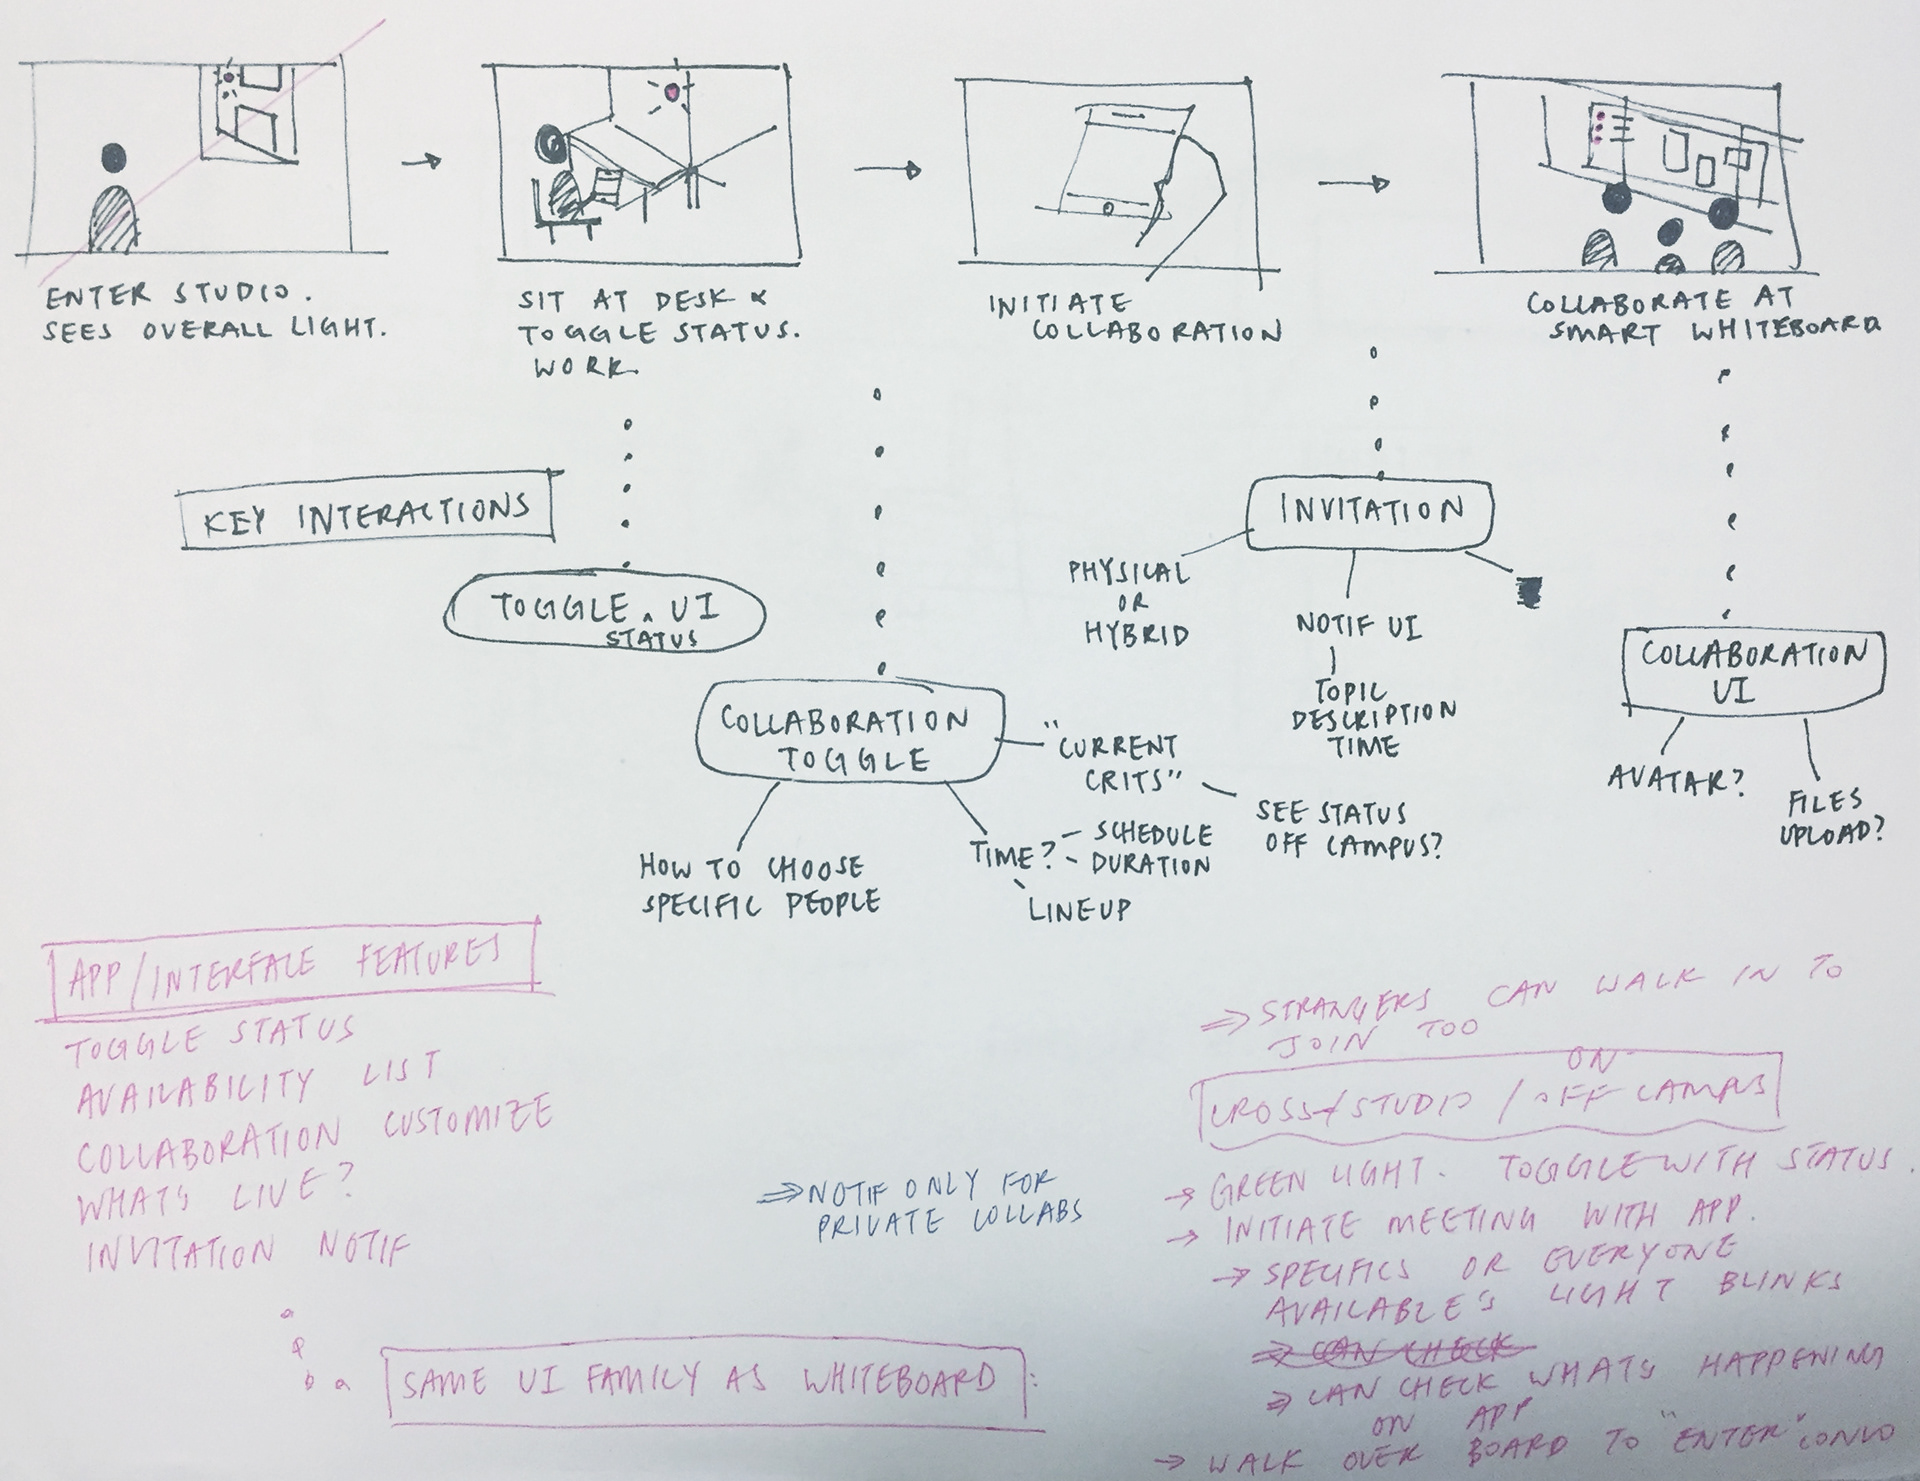 ENTER STUDIO.
SEES OVERALL LIGHT.
SIT AT DESK &
TOGGLE STATUS.
WORK.
INITIATE
COLLABORATION
COLLABORATE AT
SMART WHITEBOARD
KEY INTERACTIONS
TOGGLE ^ UI
STATUS
COLLABORATION
TOGGLE
HOW TO CHOOSE
SPECIFIC PEOPLE
TIME?
- SCHEDULE
- DURATION
LINEUP
"CURRENT
CRITS"
SEE STATUS
OFF CAMPUS?
INVITATION
PHYSICAL
OR
HYBRID
NOTIF UI
TOPIC
DESCRIPTION
TIME
COLLABORATION
UI
AVATAR?
FILES
UPLOAD?
APP/INTERFACE FEATURES
TOGGLE STATUS
AVAILABILITY LIST
COLLABORATION CUSTOMIZE
WHATS LIVE?
INVITATION NOTIF
SAME UI FAMILY AS WHITEBOARD
⇒ NOTIF ONLY FOR
PRIVATE COLLABS
⇒ STRANGERS CAN WALK IN TO
JOIN TOO
ON
CROSS-STUDIO / OFF CAMPUS
→ GREEN LIGHT. TOGGLE WITH STATUS.
→ INITIATE MEETING WITH APP.
→ SPECIFICS OR EVERYONE
AVAILABLE'S LIGHT BLINKS
⇒ CAN CHECK
⇒ CAN CHECK WHATS HAPPENING
ON APP
→ WALK OVER BOARD TO "ENTER" CONVO